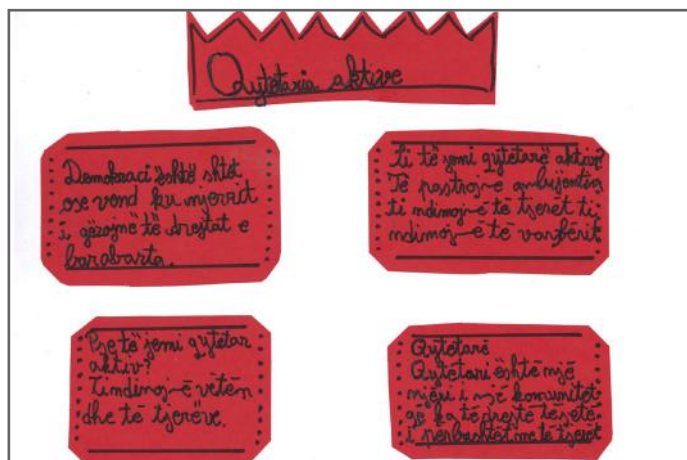 Qytetaria aktive
Demokraci është shtet
ose vend ku njerrit
i gëzojnë të drejtat e
barabarta.
Si të jemi qytetarë aktiv?
Të pastroj-ë ambijentin
ti ndimoj-ë të tjerët ti
ndimoj-ë të varfërit
Pse të jemi qytetar
aktiv?
Tindimoj-ë vetën
dhe të tjerëve.
Qytetari
Qytetari është një
njeri i një komunitet
që ka të drejtë të jetë
i përbashkët me të tjeret